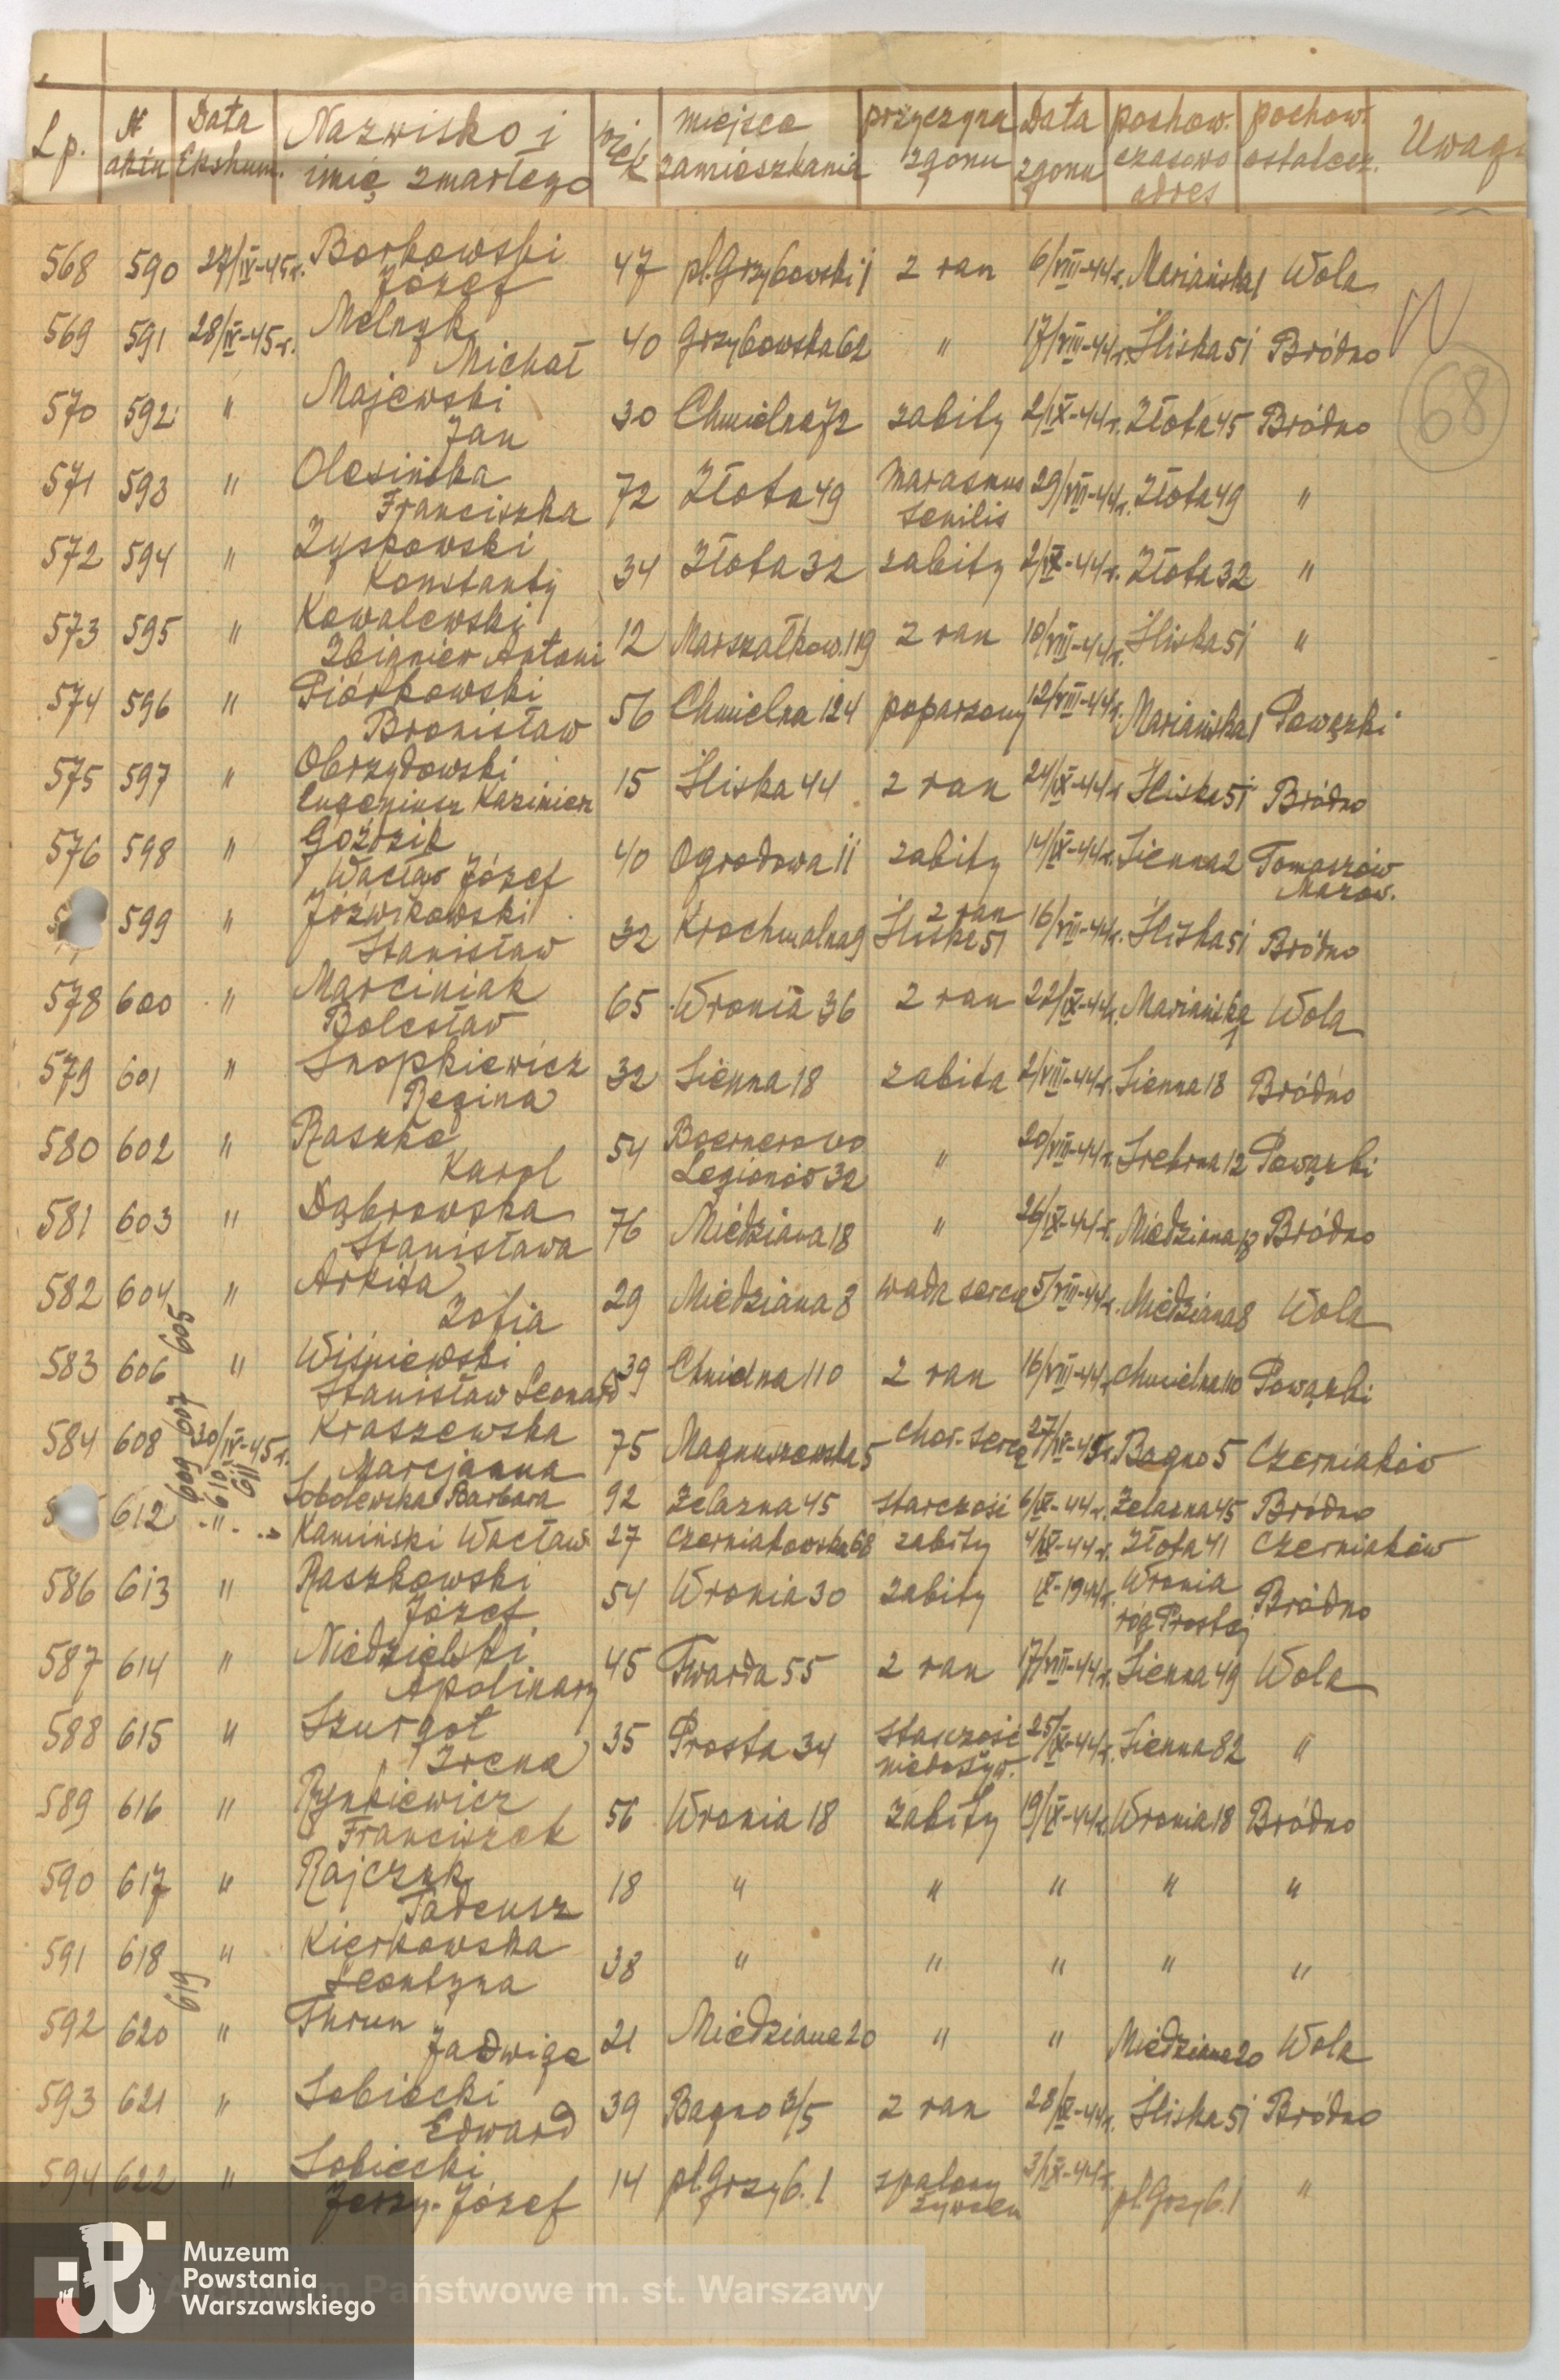 Lp. № aktu Data Ekshum. Nazwisko i imię zmarłego wiek miejsce zamieszkania przyczyna zgonu Data zgonu pochow. czasowo adres pochow. ostatecz. Uwagi
568 590 27/IV-45r. Borkowski Józef 47 pl. Grzybowski 1 z ran 6/VIII-44r. Mariańska 1 Wola
569 591 28/IV-45r. Melnyk Michał 40 Grzybowska 62 " 17/VIII-44r. Śliska 51 Bródno
68
570 592 " Majewski Jan 30 Chmielna 72 zabity 2/IX-44r. Złota 45 Bródno
571 593 " Olesińska Franciszka 72 Złota 49 Marasmus senilis 29/VIII-44r. Złota 49 "
572 594 " Zyskowski Konstanty 34 Złota 32 zabity 2/IX-44r. Złota 32 "
573 595 " Kowalewski Zbigniew Antoni 12 Marszałkow. 119 z ran 10/VIII-44r. Śliska 51 "
574 596 " Piórkowski Bronisław 56 Chmielna 124 poparzony 12/VIII-44r. Mariańska 1 Powązki
575 597 " Obrzydowski Eugeniusz Kazimierz 15 Śliska 44 z ran 24/IX-44r. Śliska 51 Bródno
576 598 " Goździk Wacław Józef 40 Ogrodowa 11 zabity 14/IX-44r. Sienna 2 Tomaszów Mazow.
599 " Józwikowski Stanisław 32 Krochmalna 9 z ran Śliska 51 16/VIII-44r. Śliska 51 Bródno
578 600 " Marciniak Bolesław 65 Wronia 36 z ran 22/IX-44r. Mariańska 1 Wola
579 601 " Snopkiewicz Regina 32 Sienna 18 zabita 2/VIII-44r. Sienna 18 Bródno
580 602 " Raszke Karol 54 Boernerowo Legionów 32 " 20/VIII-44r. Srebrna 12 Powązki
581 603 " Dąbrowska Stanisława 76 Miedziana 18 " 26/IX-44r. Miedziana 18 Bródno
582 604 " Arkita Zofia 29 Miedziana 8 wada serca 5/VIII-44r. Miedziana 8 Wola
605
583 606 " Wiśniewski Stanisław Leonard 39 Chmielna 110 z ran 16/VIII-44r. Chmielna 110 Powązki
607
584 608 30/IV-45r. Kraszewska Marcjanna 75 Magnuszewska 5 chor. serca Bagno 5 Czerniaków
609 610 611
Sobolewska Barbara 92 Żelazna 45 starczość 6/IX-44r. Żelazna 45 Bródno
612 -"- Kamiński Wacław 27 Czerniakowska 68 zabity 4/IX-44r. Złota 41 Czerniaków
586 613 " Raszkowski Józef 54 Wronia 30 zabity IX-1944r. Wronia róg Prostej Bródno
587 614 " Niedzielski Apolinary 45 Twarda 55 z ran 17/VIII-44r. Sienna 49 Wola
588 615 " Szurgot Irena 35 Prosta 34 starczość niedożyw. 25/IX-44r. Sienna 82 "
589 616 " Rynkiewicz Franciszek 56 Wronia 18 zabity 19/IX-44r. Wronia 18 Bródno
590 617 " Rajczuk Tadeusz 18 " " " " "
591 618 " Kierkowska Leontyna 38 " " " " "
619
592 620 " Thrun Jadwiga 21 Miedziana 20 " " Miedziana 20 Wola
593 621 " Sobiecki Edward 39 Bagno 3/5 z ran 28/IX-44r. Śliska 51 Bródno
594 622 " Sobiecki Jerzy-Józef 14 pl. Grzyb. 1 spalony żywcem 3/IX-44r. pl. Grzyb. 1 "
Muzeum
Powstania
Warszawskiego
Państwowe m. st. Warszawy